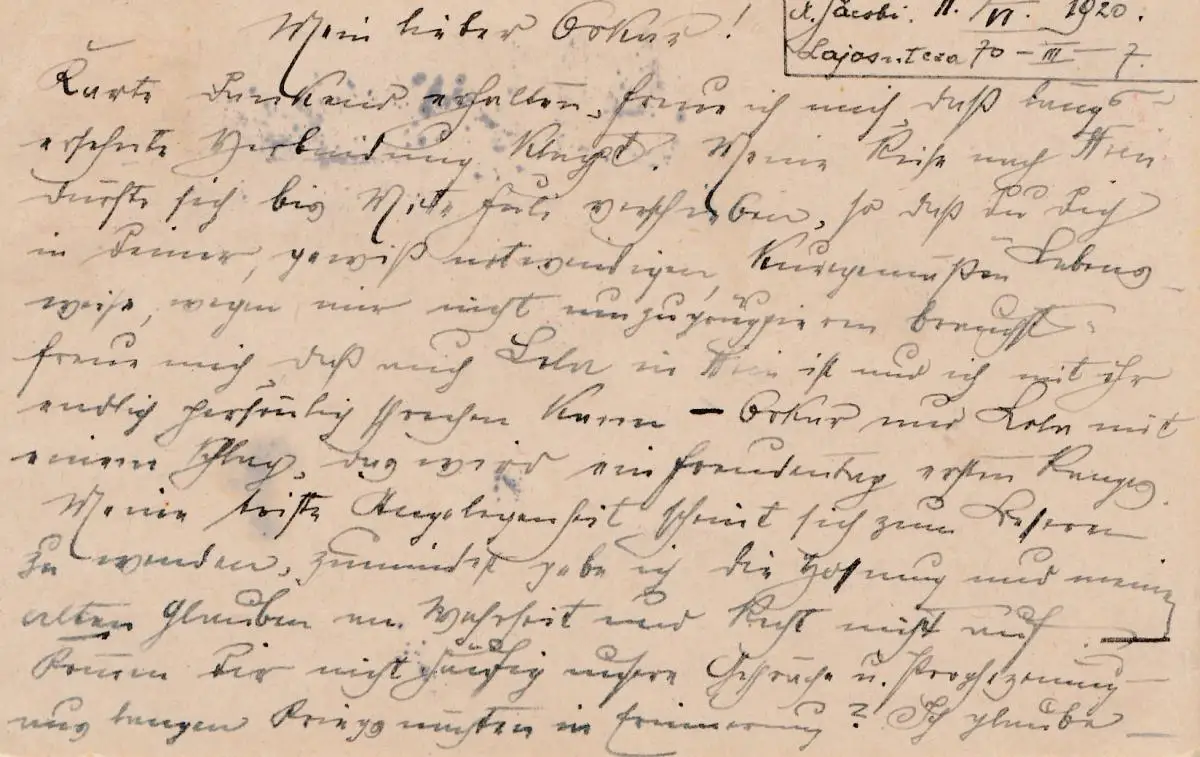 A. Jacobi. 11./VI. 1920.
Lajosutcza 70 – III – 7.
Mein lieber Oskar!
Karte dankend erhalten, freue ich mich, daß längst
ersehnte Verbindung klappt. Meine Reise nach Wien
dürfte sich bis Mitte Juli verschieben, so daß Du Dich
in Deiner, gewiß notwendigen, kurgemäßen Lebens
weise, wegen mir nicht umzugruppieren brauchst.
freue mich daß auch Lola in Wien ist und ich mit ihr
endlich persönlich sprechen kann – Oskar und Lola mit
einem Schlag, das wird ein Freudentag ersten Ranges.
Meine triste Angelegenheit scheint sich zum Besseren
zu wenden, zumindest gebe ich die Hoffnung und meinen
alten Glauben an Wahrheit und Recht nicht auf.
Kommen Dir nicht häufig unsere Gespräche u. Prophezeiung
aus langen Kriegsnächten in Erinnerung? Ich glaube